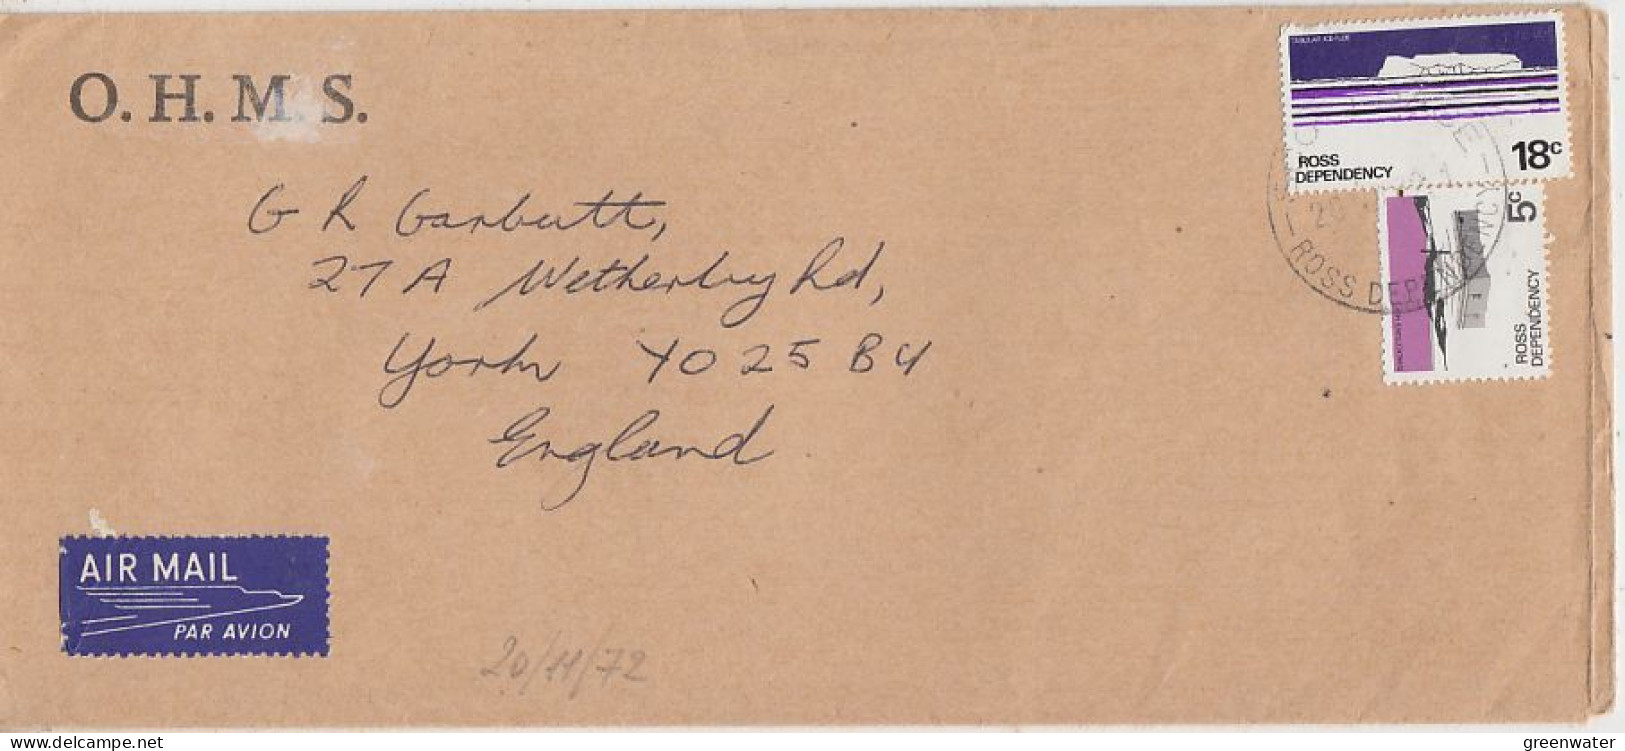 O. H. M. S.
TABULAR ICE-FLOE
18c
ROSS
DEPENDENCY
5c
ROSS
DEPENDENCY
ROSS DEPENDENCY
20
G R Garbutt,
27 A Wetherby Rd,
York YO2 5BY
England
AIR MAIL
PAR AVION
20/11/72
www.delcampe.net
greenwater